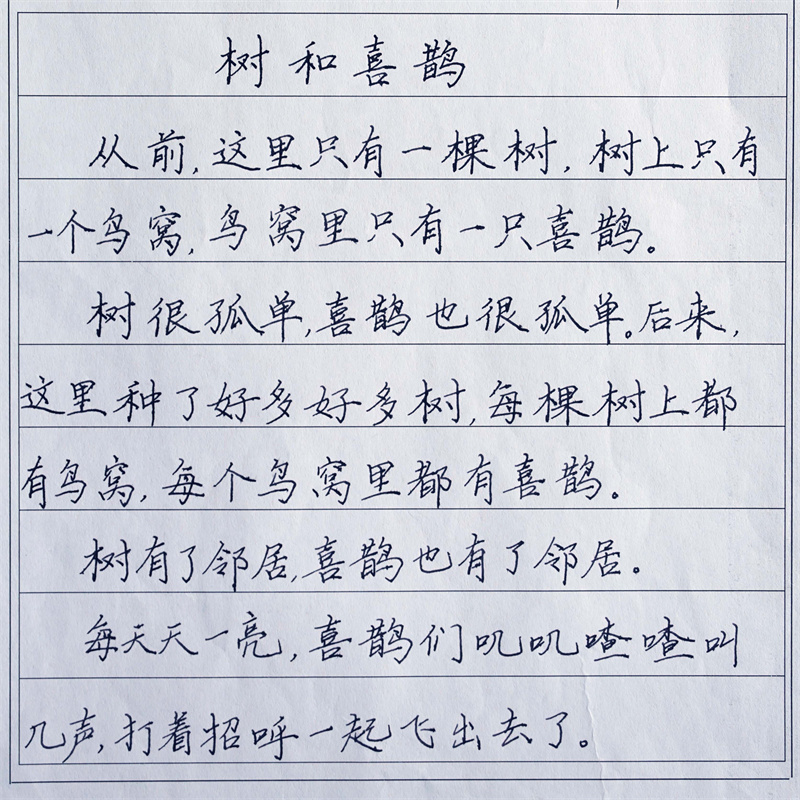 树和喜鹊
从前,这里只有一棵树,树上只有
一个鸟窝,鸟窝里只有一只喜鹊。
树很孤单,喜鹊也很孤单。后来,
这里种了好多好多树,每棵树上都
有鸟窝,每个鸟窝里都有喜鹊。
树有了邻居,喜鹊也有了邻居。
每天天一亮,喜鹊们叽叽喳喳叫
几声,打着招呼一起飞出去了。